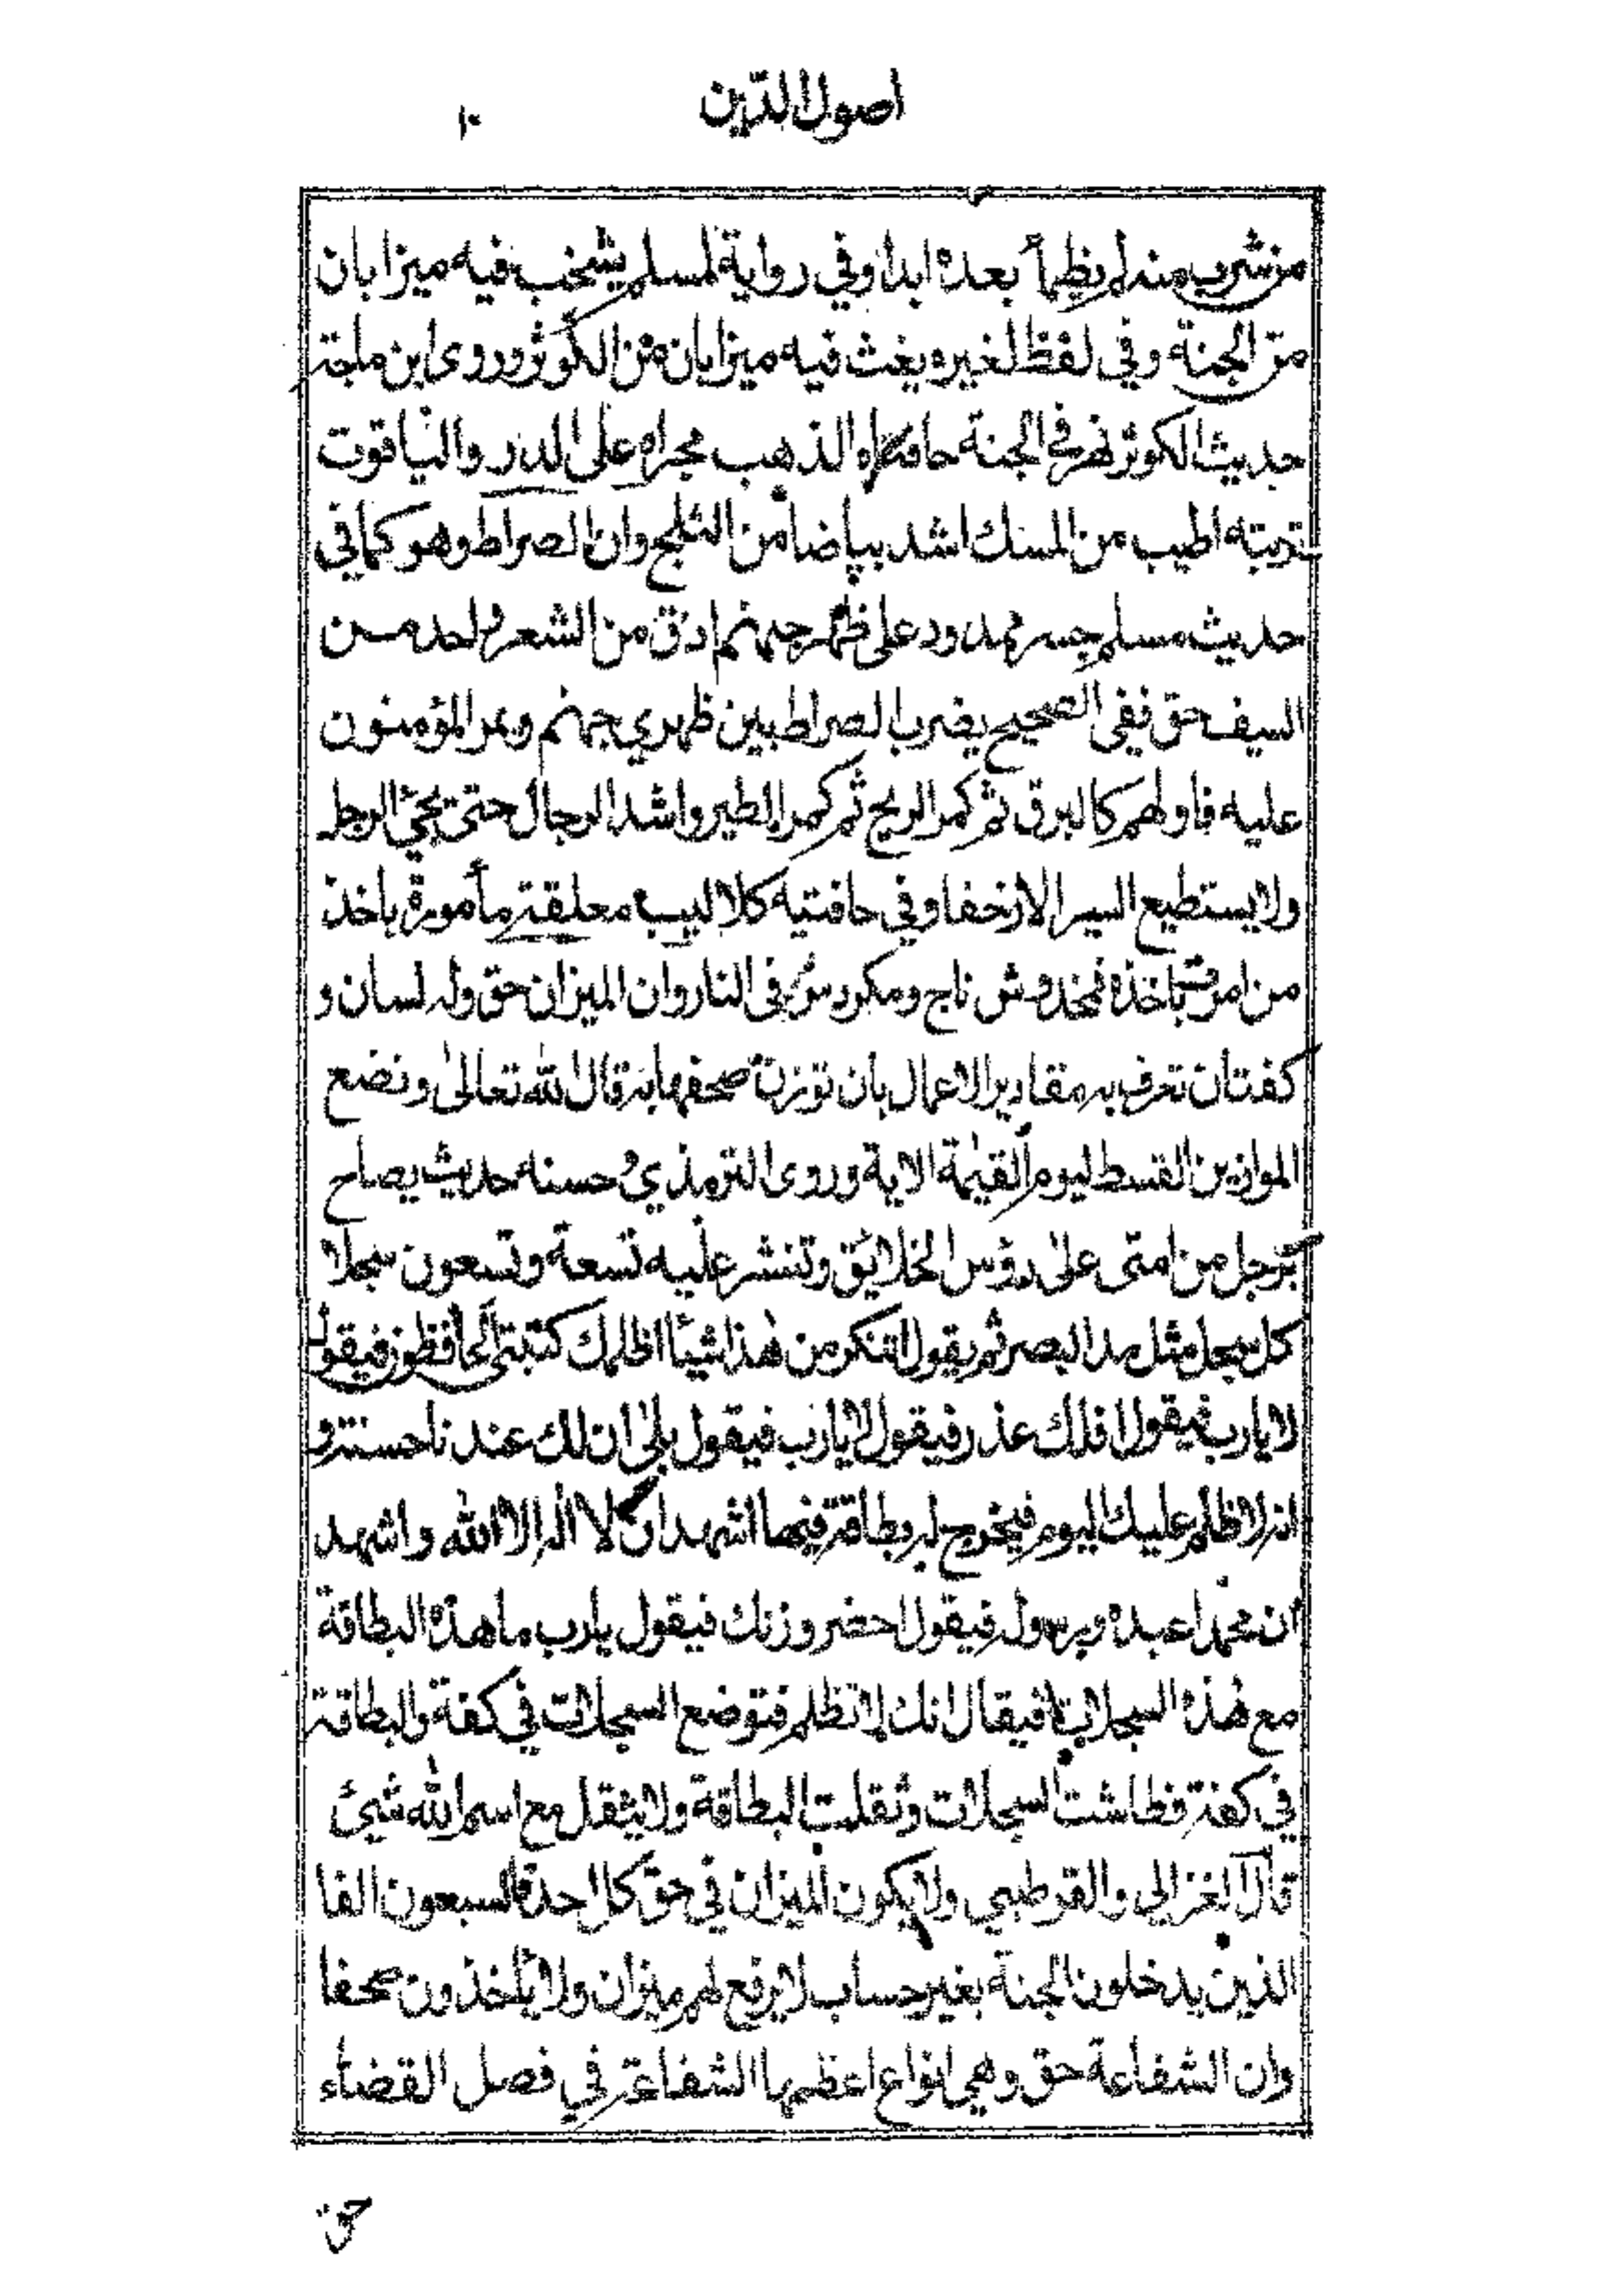 اصول الدين
١٠
من شرب منه لم يظمأ بعده ابدا وفي رواية لمسلم يشخب فيه ميزابان
من الجنة وفي لفظ لغيره يغث فيه ميزابان من الكوثر وروى ابن ماجة
حديث الكوثر نهر في الجنة حافتاه الذهب مجراه على الدر والياقوت
تربته اطيب من المسك اشد بياضا من الثلج وان الصراط وهو كما في
حديث مسلم جسر ممدود على ظهر جهنم ادق من الشعر واحد من
السيف حق ففى الصحيح يضرب الصراط بين ظهري جهنم ويمر المؤمنون
عليه فاولهم كالبرق ثم كمر الريح ثم كمر الطير واشد الرجال حتى يجئ الرجل
ولا يستطيع السير الا زحفا وفي حافتيه كلاليب معلقة مأمورة باخذ
من امرت باخذه فمخدوش ناج ومكردس في النار وان الميزان حق وله لسان و
كفتان تعرف به مقادير الاعمال بان توزن صحفها به قال الله تعالى ونضع
الموازين القسط ليوم القيمة الاية وروى الترمذي وحسنه حديث يصاح
برجل من امتى على رؤس الخلائق وتنشر عليه تسعة وتسعون سجلا
كل سجل مثل مد البصر ثم يقول اتنكر من هذا شيئا اظلمك كتبتى الحافظون فيقول
لا يارب فيقول افلك عذر فيقول لا يارب فيقول بلى ان لك عندنا حسنة و
انه لا ظلم عليك اليوم فيخرج له بطاقة فيها اشهد ان لا اله الا الله واشهد
ان محمدا عبده ورسوله فيقول احضر وزنك فيقول يارب ما هذه البطاقة
مع هذه السجلات فيقال انك لا تظلم فتوضع السجلات في كفة والبطاقة
في كفة فطاشت السجلات وثقلت البطاقة ولا يثقل مع اسم الله شيئ
قال الغزالي والقرطبي ولا يكون الميزان في حق كل احد فالسبعون الفا
الذين يدخلون الجنة بغير حساب لا يرفع لهم ميزان ولا يأخذون صحفا
وان الشفاعة حق وهي انواع اعظمها الشفاعة في فصل القضاء
حق